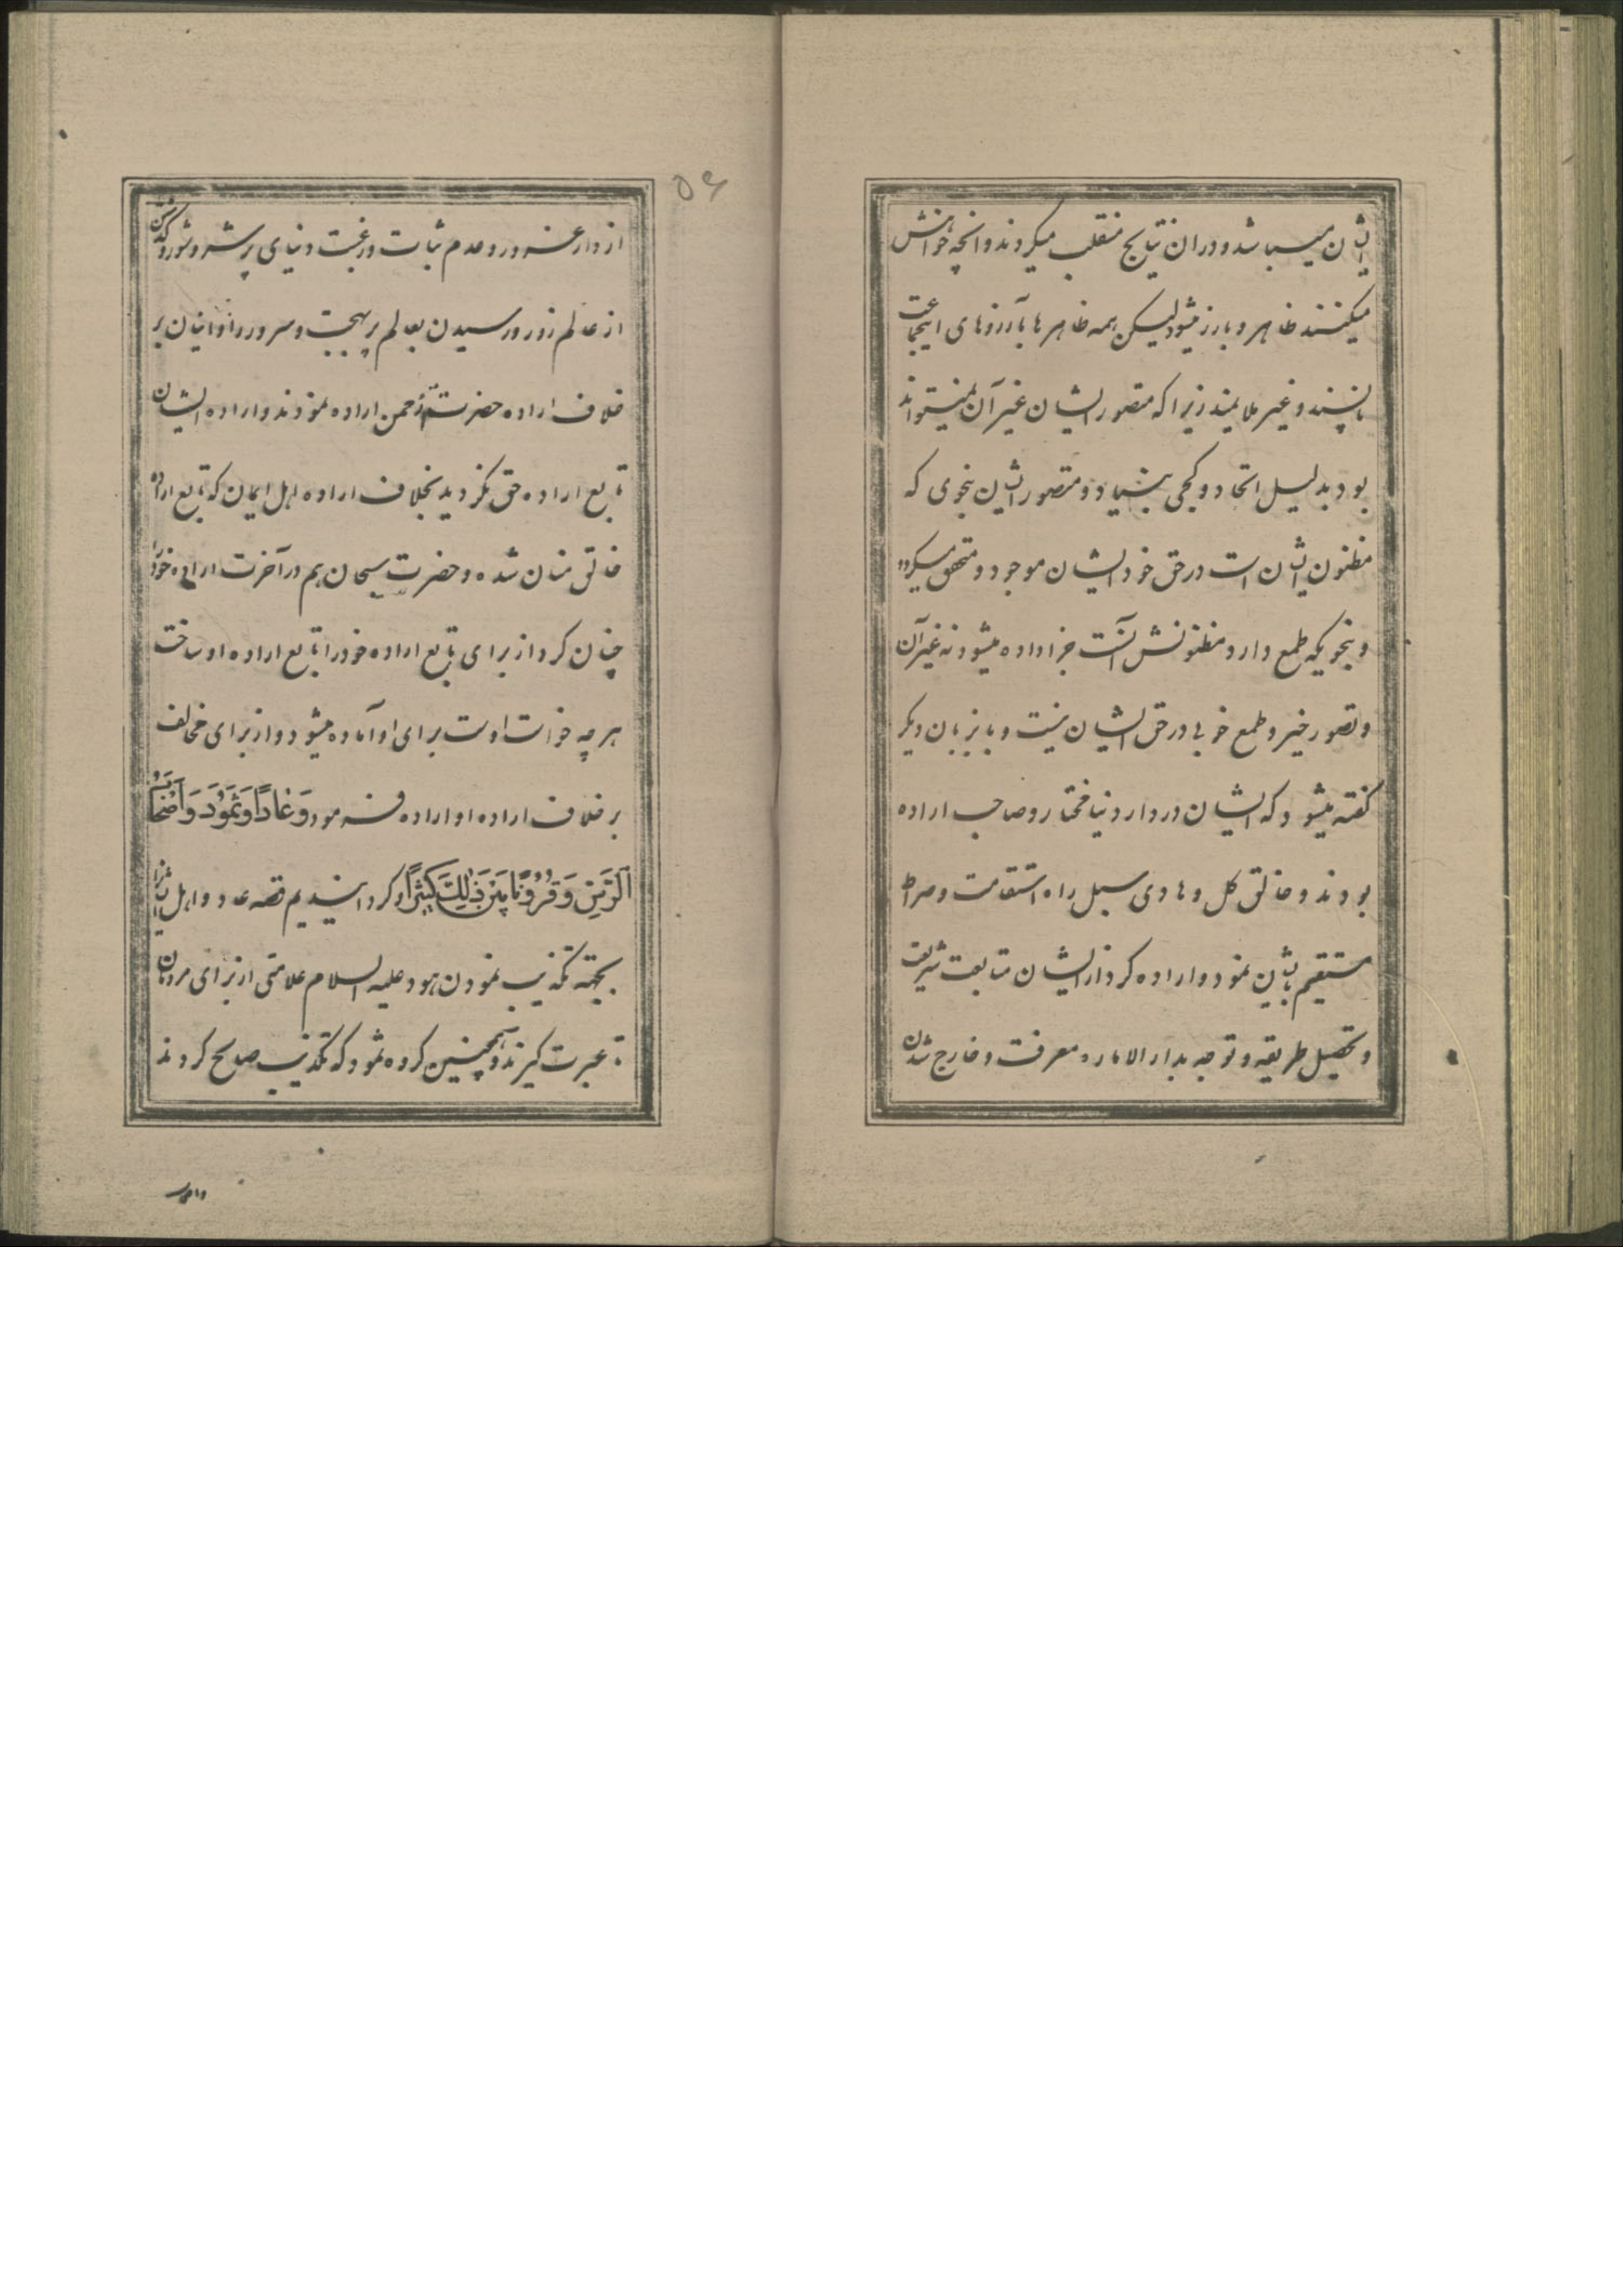 ایشان میباشد و دران نتایج منقلب میکردند و انچه خواهش
میکنند ظاهر و بارز میشود لیکن همه ظاهر ها بآرزوهای اینجماعت
ناپسند و غیر ملایمند زیرا که متصور ایشان غیر آن نمیتواند
بود بدلیل اتحاد و کجی بنیاد و متصور ایشان بنحوی که
مظنون ایشان است در حق خود ایشان موجود و متحقق میکردد
و بنحویکه طمع دارد مظنونش آنست جزا داده میشود نه غیر آن
و تصور خیر و طمع خوبی در حق ایشان نیست و باز بزبان دیکر
کفته میشود که ایشان در دار دنیا مختار و صاحب اراده
بودند و خالق کل و هادی سبل راه استقامت و صراط
مستقیم بایشان نمود و اراده کرد از ایشان متابعت شریعت
و تحصیل طریقه و توجه بدار الاماره معرفت و خارج شدن
۵۶
از دار غرور و عدم ثبات و رغبت دنیای پر شر و شور و کذشتن
از عالم زور و رسیدن بعالم پر بهجت و سرور و اینان بر
خلاف اراده حضرت رحمن اراده نمودند و اراده ایشان
تابع اراده حق نکردید بخلاف اراده اهل ایمان که تابع اراده
خالق منان شده و حضرت سبحان هم در آخرت اراده خود را
چنان کرد از برای تابع اراده خود را تابع اراده او ساخت
هر چه خواست اوست برای او آماده میشود و از برای مخالف
بر خلاف اراده او اراده فرمود وَعَادًا وَثَمُودَ وَأَصْحَابَ
الرَّسِّ وَقُرُونًا بَيْنَ ذَٰلِكَ كَثِيرًا و کردانیدیم قصه عاد و اهل
بجهته تکذیب نمودن هود علیه السلام علامتی از برای مردمان
تا عبرت کیرند و همچنین کروه ثمود که تکذیب صالح کردند